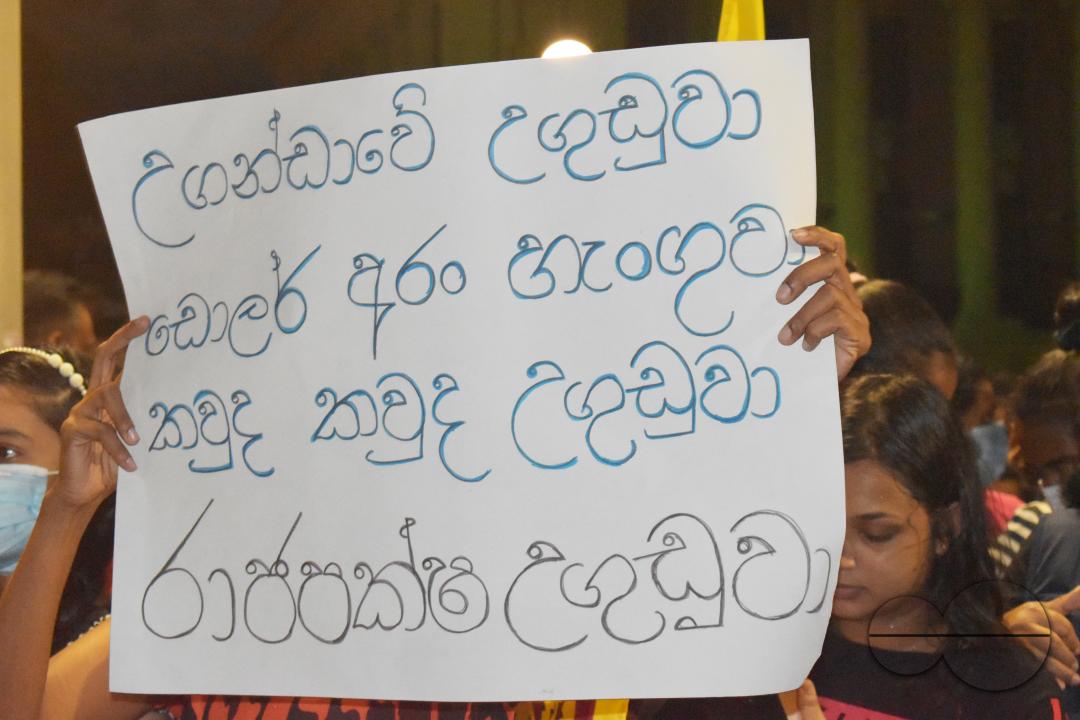 උගන්ඩාවේ උගුඩුවා
ඩොලර් අරං හැංගුවා
කවුද කවුද උගුඩුවා
රාජපක්ෂ උගුඩුවා